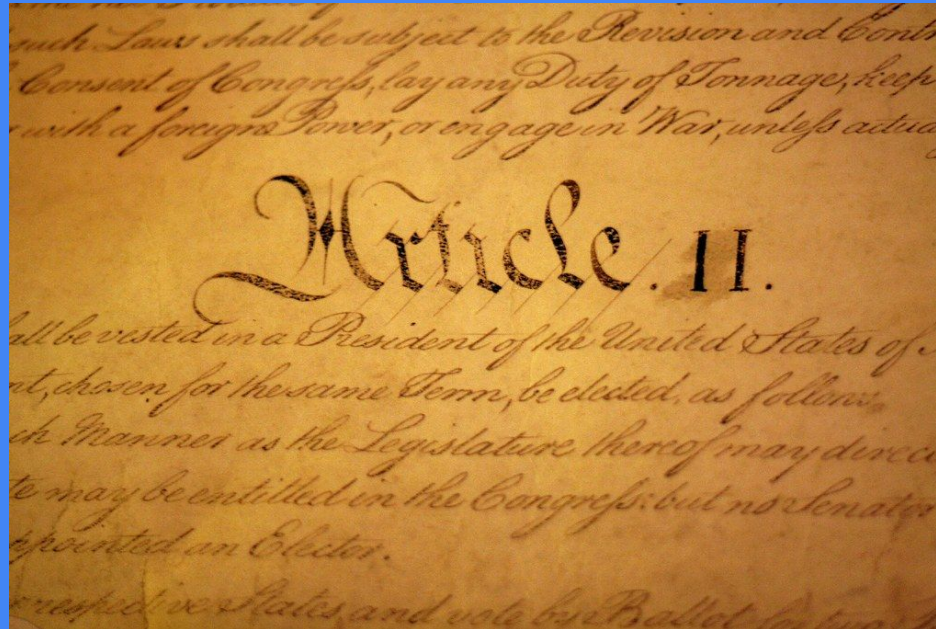 such Laws shall be subject to the Revision and Contr
Consent of Congreſs, lay any Duty of Tonnage, keep
with a foreign Power, or engage in War, unleſs actua
Article. II.
all be vested in a President of the United States of
nt, chosen for the same Term, be elected, as follows
ch Manner as the Legislature thereof may direct
te may be entitled in the Congreſs: but no Senator
ppointed an Elector.
respective States, and vote by Ballot for two